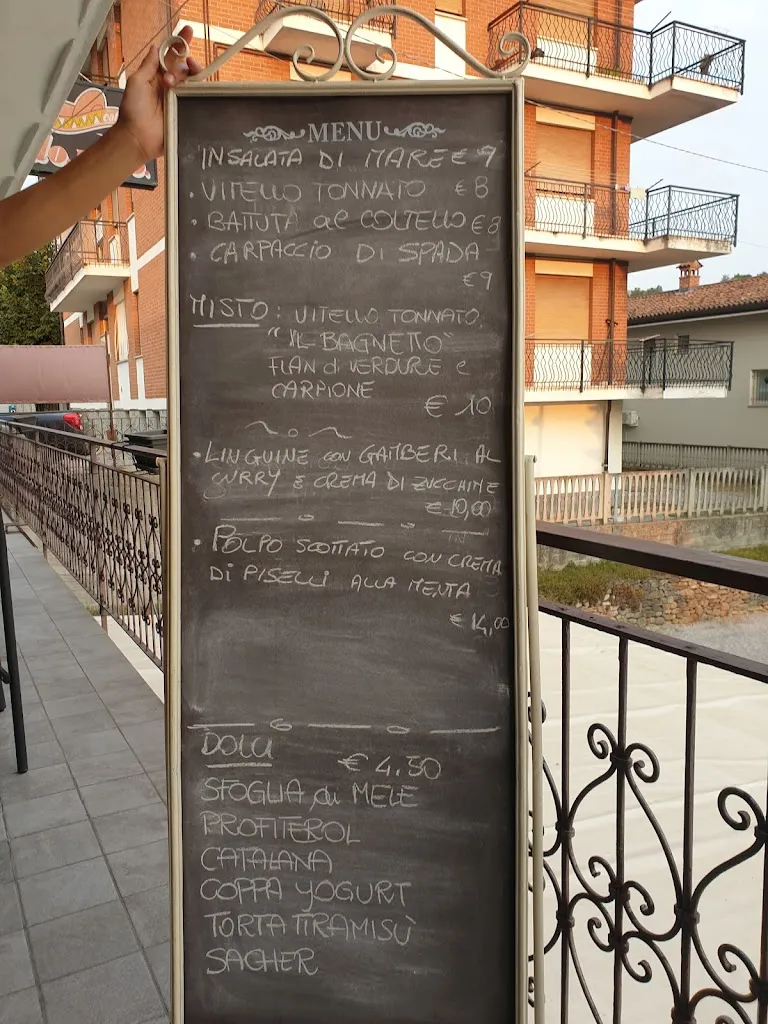 MENU
INSALATA DI MARE € 9
• VITELLO TONNATO € 8
• BATTUTA al COLTELLO € 8
• CARPACCIO DI SPADA
€ 9
MISTO : VITELLO TONNATO,
"IL BAGNETTO"
FLAN di VERDURE e
CARPIONE
€ 10
• LINGUINE con GAMBERI AL
CURRY E CREMA DI ZUCCHINE
€ 10,00
• POLPO SCOTTATO CON CREMA
DI PISELLI ALLA MENTA
€ 14,00
DOLCI
€ 4.50
SFOGLIA di MELE
PROFITEROL
CATALANA
COPPA YOGURT
TORTA TIRAMISÙ
SACHER